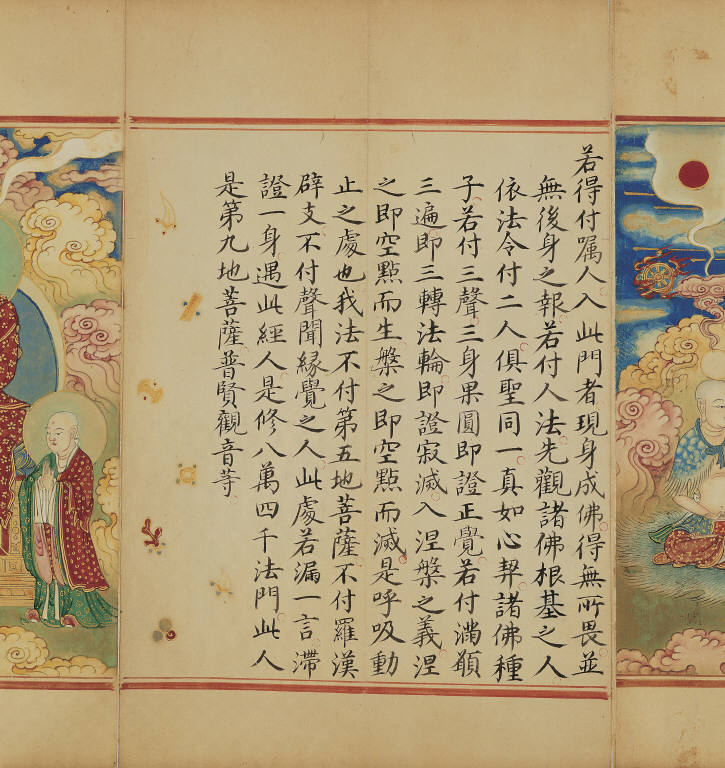 若得付嘱人入此門者現身成佛得無所畏並
無後身之報若付人法先觀諸佛根基之人
依法令付二人俱聖同一真如心契諸佛種
子若付三聲三身果圓即證正覺若付滿頋
三遍即三轉法輪即證寂滅入涅槃之義涅
之即空點而生槃之即空點而滅是呼吸動
止之處也我法不付第五地菩薩不付羅漢
辟支不付聲聞緣覺之人此處若漏一言滯
證一身遇此經人是修八萬四千法門此人
是第九地菩薩普賢觀音等